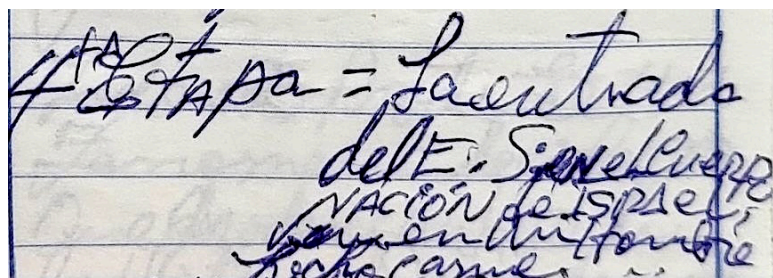 4ta Etapa = La entrada
del E. S. en el Cuerpo
NACIÓN de ISRAEL;
en un Hombre
hecho carne